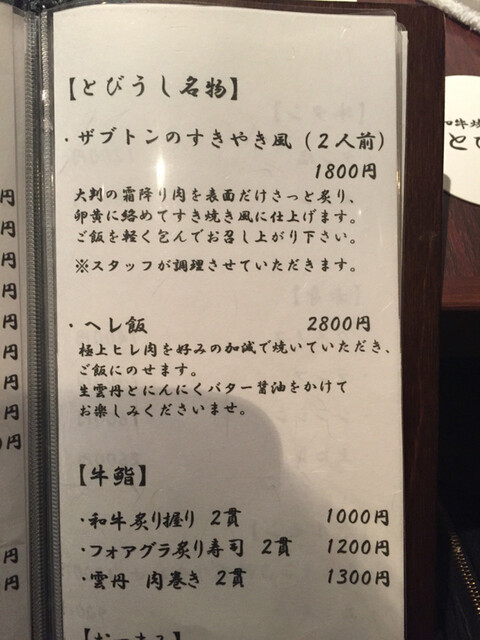 【とびうし名物】
・ザブトンのすきやき風（２人前）
1800円
大判の霜降り肉を表面だけさっと炙り、
卵黄に絡めてすき焼き風に仕上げます。
ご飯を軽く包んでお召し上がり下さい。
※スタッフが調理させていただきます。
・ヘレ飯 2800円
極上ヒレ肉を好みの加減で焼いていただき、
ご飯にのせます。
生雲丹とにんにくバター醤油をかけて
お楽しみくださいませ。
【牛鮨】
・和牛炙り握り 2貫 1000円
・フォアグラ炙り寿司 2貫 1200円
・雲丹 肉巻き 2貫 1300円
円
円
円
円
円
円
円
円
円
円
円